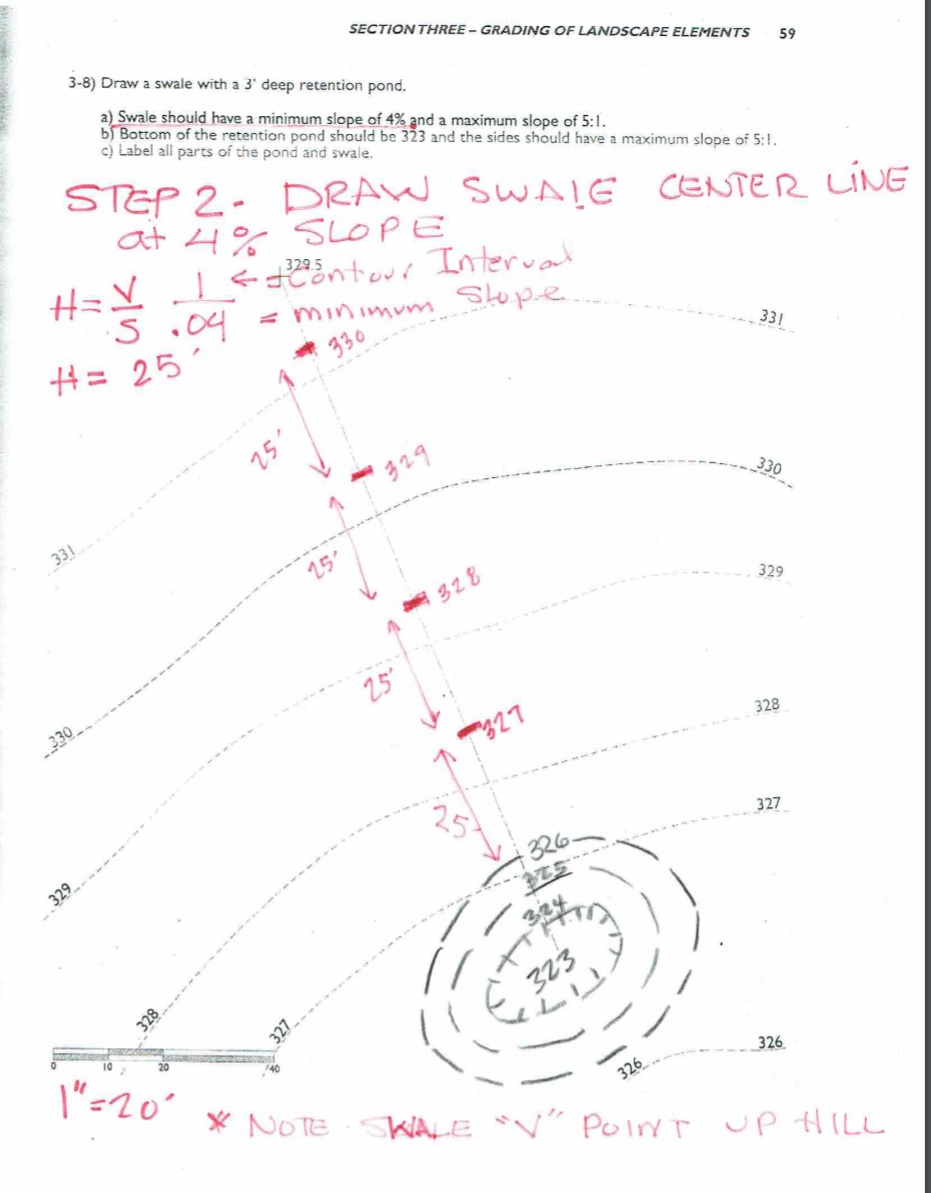 SECTION THREE – GRADING OF LANDSCAPE ELEMENTS 59
3-8) Draw a swale with a 3' deep retention pond.
a) Swale should have a minimum slope of 4% and a maximum slope of 5:1.
b) Bottom of the retention pond should be 323 and the sides should have a maximum slope of 5:1.
c) Label all parts of the pond and swale.
STEP 2- DRAW SWALE CENTER LINE
at 4% SLOPE
329.5
H= V/S 1/.04 ← Contour Interval
= minimum Slope
H= 25'
330
331
25'
329
330
331
25'
328
329
25'
327
328
330
25
327
326
325
324
323
329
328
327
326
326
0 10 20 40
1"=20'
* NOTE SWALE "V" POINT UP HILL